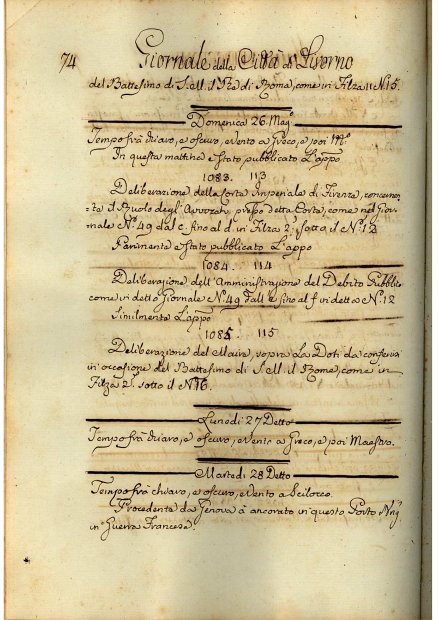 74 Giornale della Città di Livorno
del Battesimo di S. M. il Re di Roma, come in Filza 11 N. 15.
Domenica 26 Mag.
Tempo frà chiaro, e oscuro, e Vento a Greco, e poi M.
In questa mattina è stato pubblicato l'app.
1083. 113
Deliberazione della Corte Imperiale di Firenze, concernen-
=te il Ruolo degl' Avvocati presso detta Corte, come nel Gior-
nale N. 49 dal c. fino al d. in Filza 2. sotto il N. 12
Parimente è stato pubblicato l'app.
1084. 114
Deliberazione dell' Amministrazione del Debito Pubblic
come in detto Giornale N. 49 dall' e fino al f in detta a N. 12
Similmente l'app.
1085. 115
Deliberazione del Maire, sopra la Doti da conferirsi
in occasione del Battesimo di S. M. il Rome, come in
Filza 2. sotto il N. 16.
Lunedi 27 Detto
Tempo frà chiaro, e oscuro, e Vento a Greco, e poi Maestro.
Martedi 28 Detto
Tempo frà chiaro, e oscuro, e Vento a Scilocco.
Procedente da Genova à ancorato in questo Porto
in Guerra Francese.